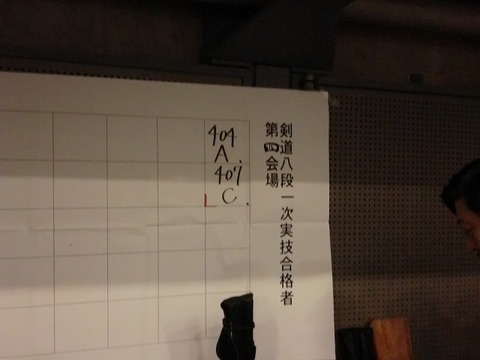 剣道八段一次実技合格者
第四会場
404
A
407
C